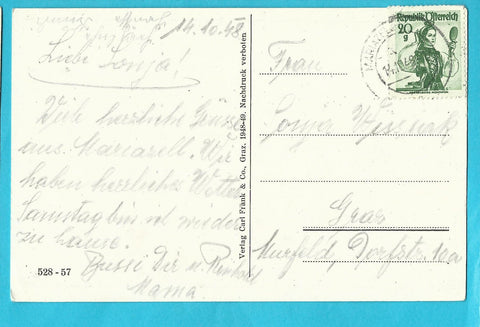 14.10.48
Liebe Sonja!
Viele herzliche Grüsse
aus Mariazell. Wir
haben herrliches Wetter
Samstag bin ich wieder
zu Hause.
Bussi Dir u. Reinhard
Mama
528 - 57
Verlag Carl Frank & Co., Graz. 1948-49. Nachdruck verboten
Republik Österreich
20
g
Frau
Sonja
Graz
Murfeld, Dorfstr. 10a